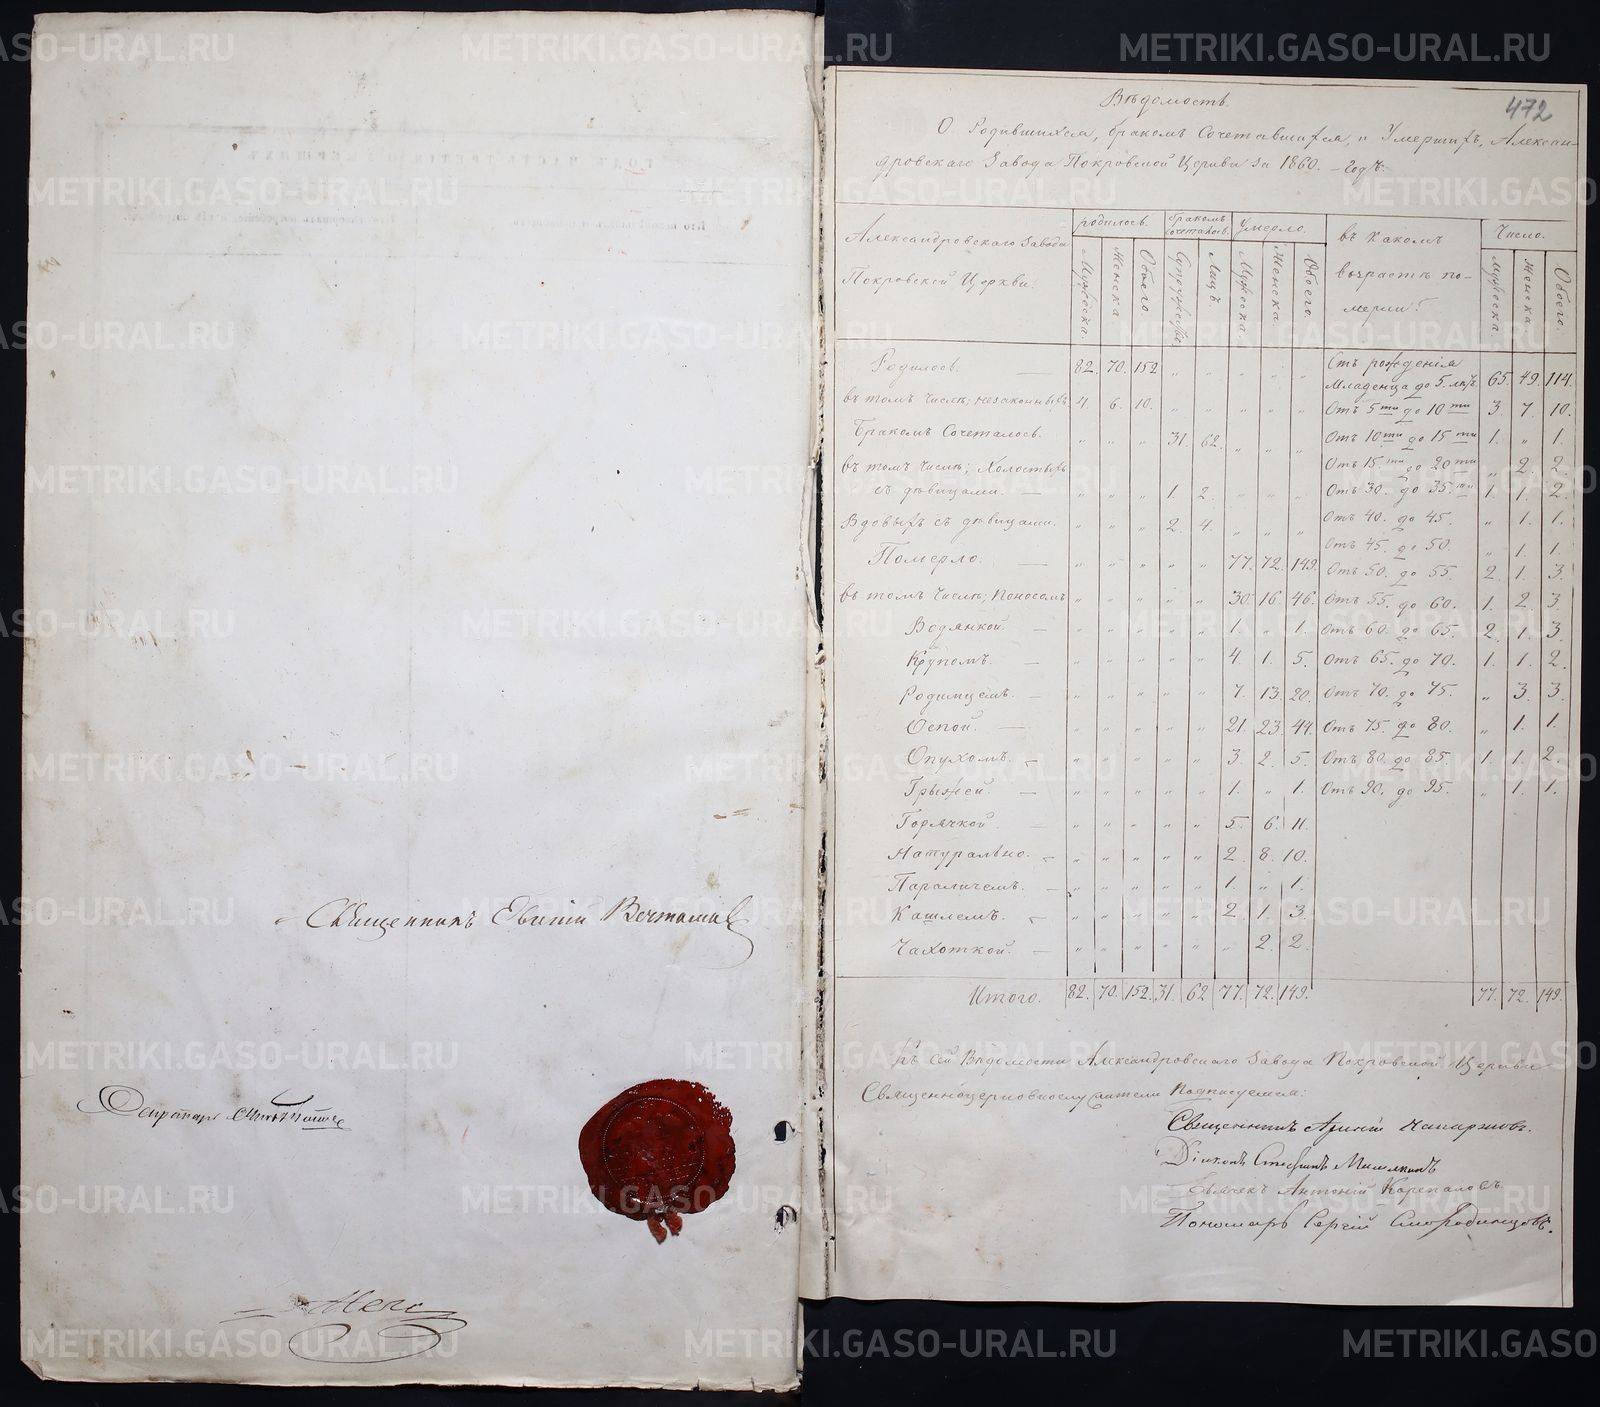 Священникъ Евгеній
Секретарь
472
Вѣдомость.
О Родившихся, бракомъ Сочетавшихся, и Умершихъ, Алексан-
дровскаго Завода Покровской Церкви за 1860. - Годъ.
Александровскаго Завода Покровской Церкви. | родилось. | бракомъ сочеталось. | Умерло. | въ какомъ возрастѣ по-мерли? | Число.
Мужеска. Женска Обоего. | Супружествъ Лицъ. | Мужеска. Женска. Обоего. | Мужеска Женска. Обоего.
Родилось. — 82. 70. 152 „ „ „ „ „ Отъ рожденія Младенца до 5. лѣтъ. 65. 49. 114.
въ томъ числѣ; незаконныхъ 4. 6. 10. „ „ „ „ „ Отъ 5 ти до 10 ти 3. 7. 10.
Бракомъ Сочеталось. „ „ „ 31. 62. „ „ „ Отъ 10 ти до 15 ти 1. „ 1.
въ томъ числѣ; Холостыхъ Отъ 15. ти до 20 ти „ 2. 2.
съ дѣвицами. — „ „ „ 1. 2. „ „ „ Отъ 30. до 35. ти 1. 1. 2.
Вдовыхъ съ дѣвицами. „ „ „ 2. 4. „ „ „ Отъ 40. до 45. „ 1. 1.
Отъ 45. до 50. „ 1. 1.
Померло. — „ „ „ „ „ 77. 72. 149. Отъ 50. до 55. 2. 1. 3.
въ томъ числѣ; Поносомъ „ „ „ „ „ 30. 16. 46. Отъ 55. до 60. 1. 2. 3.
Водянкой. — „ „ „ „ „ 1. „ 1. Отъ 60. до 65. 2. 1. 3.
Крупомъ. — „ „ „ „ „ 4. 1. 5. Отъ 65. до 70. 1. 1. 2.
Родимцемъ. — „ „ „ „ „ 7. 13. 20. Отъ 70. до 75. „ 3. 3.
Оспой. — „ „ „ „ „ 21. 23. 44. Отъ 75. до 80. „ 1. 1.
Опухомъ. — „ „ „ „ „ 3. 2. 5. Отъ 80. до 85. 1. 1. 2.
Грыжей. — „ „ „ „ „ 1. „ 1. Отъ 90. до 95. „ 1. 1.
Горячкой. — „ „ „ „ „ 5. 6. 11.
Натурально. — „ „ „ „ „ 2. 8. 10.
Параличемъ. — „ „ „ „ „ 1. „ 1.
Кашлемъ. — „ „ „ „ „ 2. 1. 3.
Чахоткой. — „ „ „ „ „ „ 2. 2.
Итого. 82. 70. 152. 31. 62 77. 72. 149. 77. 72. 149.
Къ сей Вѣдомости Александровскаго Завода Покровской Церкви
Священноцерковнослужители Подписуемся:
Священникъ
Діаконъ Стефанъ
Дьячекъ Антоній
Пономарь Сергій Смородинцовъ.
METRIKI.GASO-URAL.RU